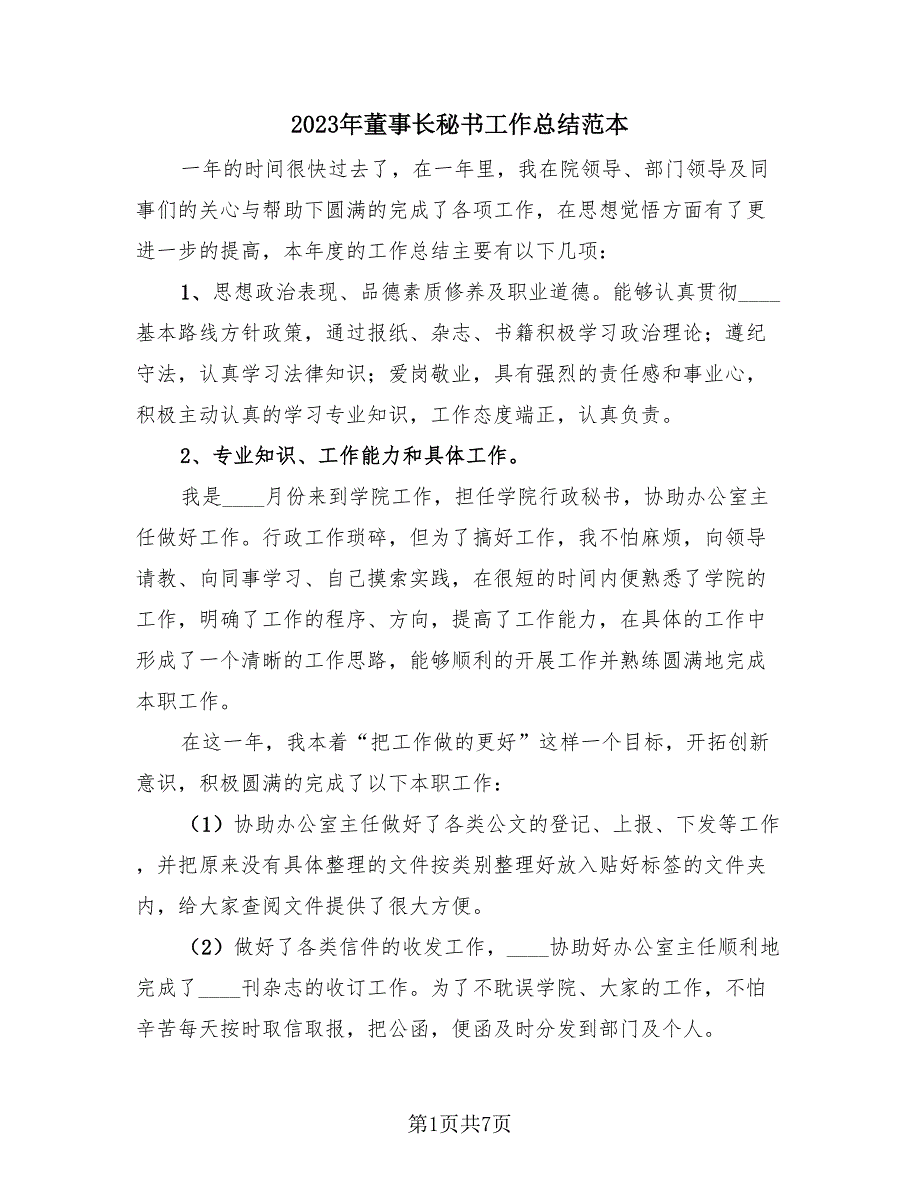 2023年董事长秘书工作总结范本
一年的时间很快过去了，在一年里，我在院领导、部门领导及同
事们的关心与帮助下圆满的完成了各项工作，在思想觉悟方面有了更
进一步的提高，本年度的工作总结主要有以下几项：
1、思想政治表现、品德素质修养及职业道德。能够认真贯彻____
基本路线方针政策，通过报纸、杂志、书籍积极学习政治理论；遵纪
守法，认真学习法律知识；爱岗敬业，具有强烈的责任感和事业心，
积极主动认真的学习专业知识，工作态度端正，认真负责。
2、专业知识、工作能力和具体工作。
我是____月份来到学院工作，担任学院行政秘书，协助办公室主
任做好工作。行政工作琐碎，但为了搞好工作，我不怕麻烦，向领导
请教、向同事学习、自己摸索实践，在很短的时间内便熟悉了学院的
工作，明确了工作的程序、方向，提高了工作能力，在具体的工作中
形成了一个清晰的工作思路，能够顺利的开展工作并熟练圆满地完成
本职工作。
在这一年，我本着“把工作做的更好”这样一个目标，开拓创新
意识，积极圆满的完成了以下本职工作：
（1）协助办公室主任做好了各类公文的登记、上报、下发等工作
，并把原来没有具体整理的文件按类别整理好放入贴好标签的文件夹
内，给大家查阅文件提供了很大方便。
（2）做好了各类信件的收发工作，____协助好办公室主任顺利地
完成了____刊杂志的收订工作。为了不耽误学院、大家的工作，不怕
辛苦每天按时取信取报，把公函，便函及时分发到部门及个人。
第1页共7页